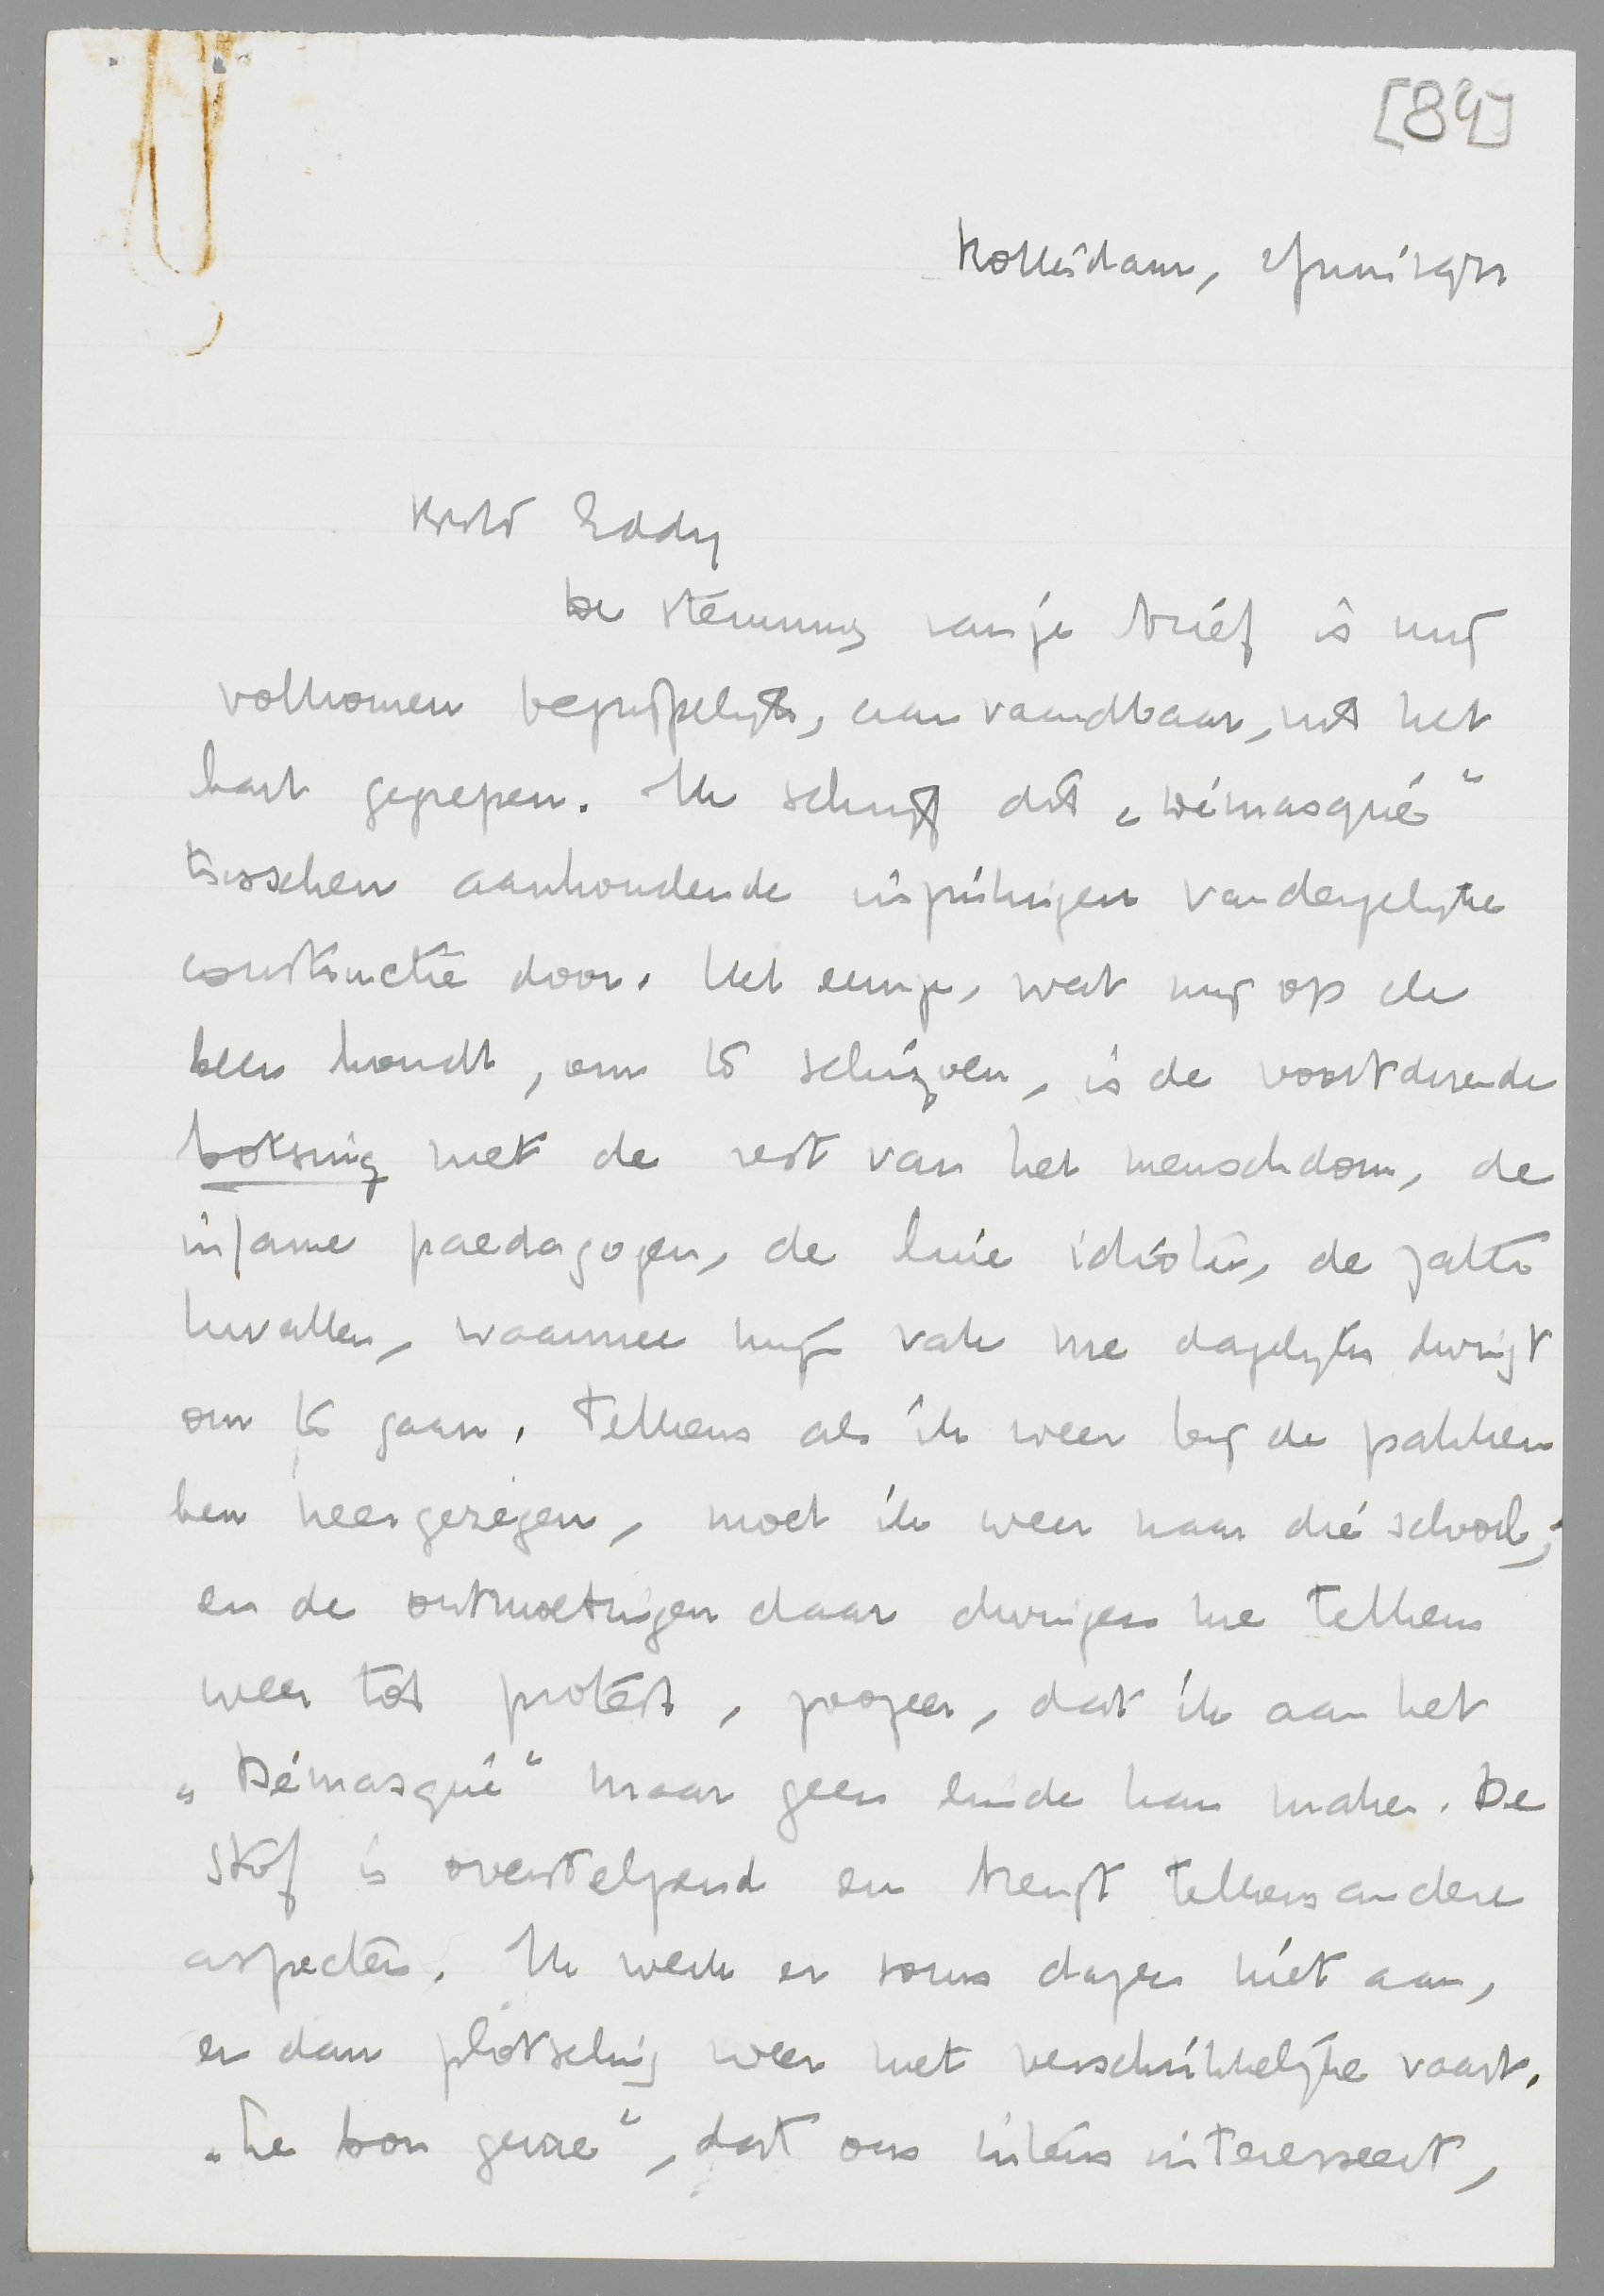 [84]
Rotterdam, 2 Juni 1931
Beste Eddy
De stemming van je brief is mij
volkomen begrijpelijk, aanvaardbaar, uit het
hart gegrepen. Ik schrijf dit „Démasqué”
tusschen aanhoudende van dergelijke
constructie door. Het eenige, wat mij op de
been houdt, om te schrijven, is de voortdurende
botsing met de rest van het menschdom, de
infame paedagogen, de luie idioten, de
waarmee mijn vak me dagelijks dwingt
om te gaan. Telkens als ik weer bij de pakken
ben neergezegen, moet ik weer naar die school;
en de ontmoetingen daar dwingen me telkens
weer tot protest, zoozeer, dat ik aan het
„Démasqué” maar geen einde kan maken. De
stof is overstelpend en brengt telkens andere
aspecten. Ik werk er soms dagen niet aan,
en dan plotseling weer met verschrikkelijke vaart.
„Le bon genre”, dat ons intens interesseert,